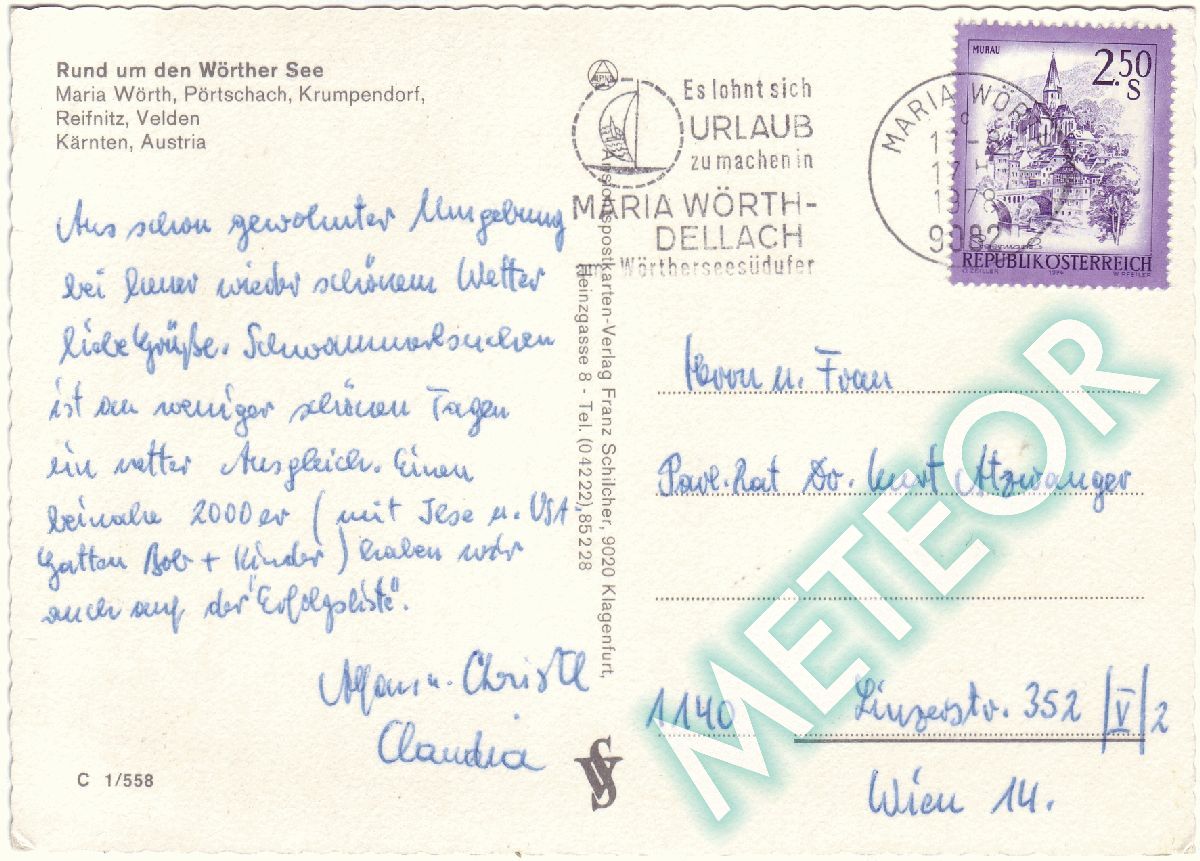 Rund um den Wörther See
Maria Wörth, Pörtschach, Krumpendorf,
Reifnitz, Velden
Kärnten, Austria
Aus schon gewohnter Umgebung
bei heuer wieder schönem Wetter
liebe Grüße. Schwammerlsuchen
ist an weniger schönen Tagen
ein netter Ausgleich. Einen
beinahe 2000er (mit Ilse u. USA
Gatten Bob + Kinder) haben wir
auch auf der "Erfolgsliste".
u. Christl
Claudia
C 1/558
Ansichtspostkarten-Verlag Franz Schilcher, 9020 Klagenfurt,
Heinzgasse 8 - Tel. (04222) 85228
Es lohnt sich
URLAUB
zu machen in
MARIA WÖRTH-
DELLACH
am Wörtherseesüdufer
MARIA WÖR
1978
9082
MURAU
2.50
S
REPUBLIK ÖSTERREICH
O. ZEILLER 1974 W. PFEILER
Herrn u. Frau
Parl. Rat Dr. Kurt Atzwanger
1140 Linzerstr. 352 /V/2
Wien 14.
METEOR